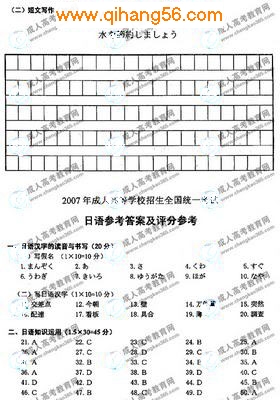 www.qihang56.com
(二) 短文写作
水を節約しましょう
2007年成人高等学校招生全国统一考试
日语参考答案及评分参考
一、日语汉字的读音与书写 (20分)
(一) 写假名 (1×10=10分)
1.まんぞく 2.あ 3.さ 4.くわ 5.すぐ
6.うわぎ 7.きいろ 8.ゆうがた 9.は 10.なや
(二) 写日语汉字 (1×10=10分)
11.交差点 12.今朝 13.壁 14. 15.突然
16.配達 17.看板 18.具合 19.薄 20.調査
二、日语知识运用 (1.5×30=45分)
21. A 22. C 23. C 24. B 25. A
A 27. A 28. D 29. D
31. A 32. C 33. B 34. D
36. A 37. A 38. C 39. C 40. D
41. D 42. D 43. D 44. C 45. B
46. C 47. B 48. B 49. D 50. A
成人高考教育网
www.chengkao365.com